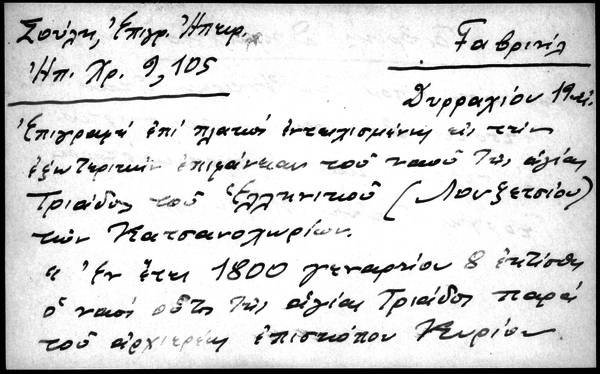 Σούλη, Ἐπιγρ. Ἠπειρ.
Ἠπ. Χρ. 9, 105
Γαβριήλ
Δυρραχίου
Ἐπιγραφή ἐπί πλακός ἐντειχισμένης εἰς τήν
ἐξωτερικήν ἐπιφάνειαν τοῦ ναοῦ τῆς ἁγίας
Τριάδος τοῦ Ἑλληνικοῦ (Λοζετσίου)
τῶν Κατσανοχωρίων.
"Ἐν ἔτει 1800 γεναρίου 8 ἐκτίσθη
ὁ ναός οὗτος τῆς ἁγίας Τριάδος παρά
τοῦ ἀρχιερέως ἐπισκόπου Κυρίου